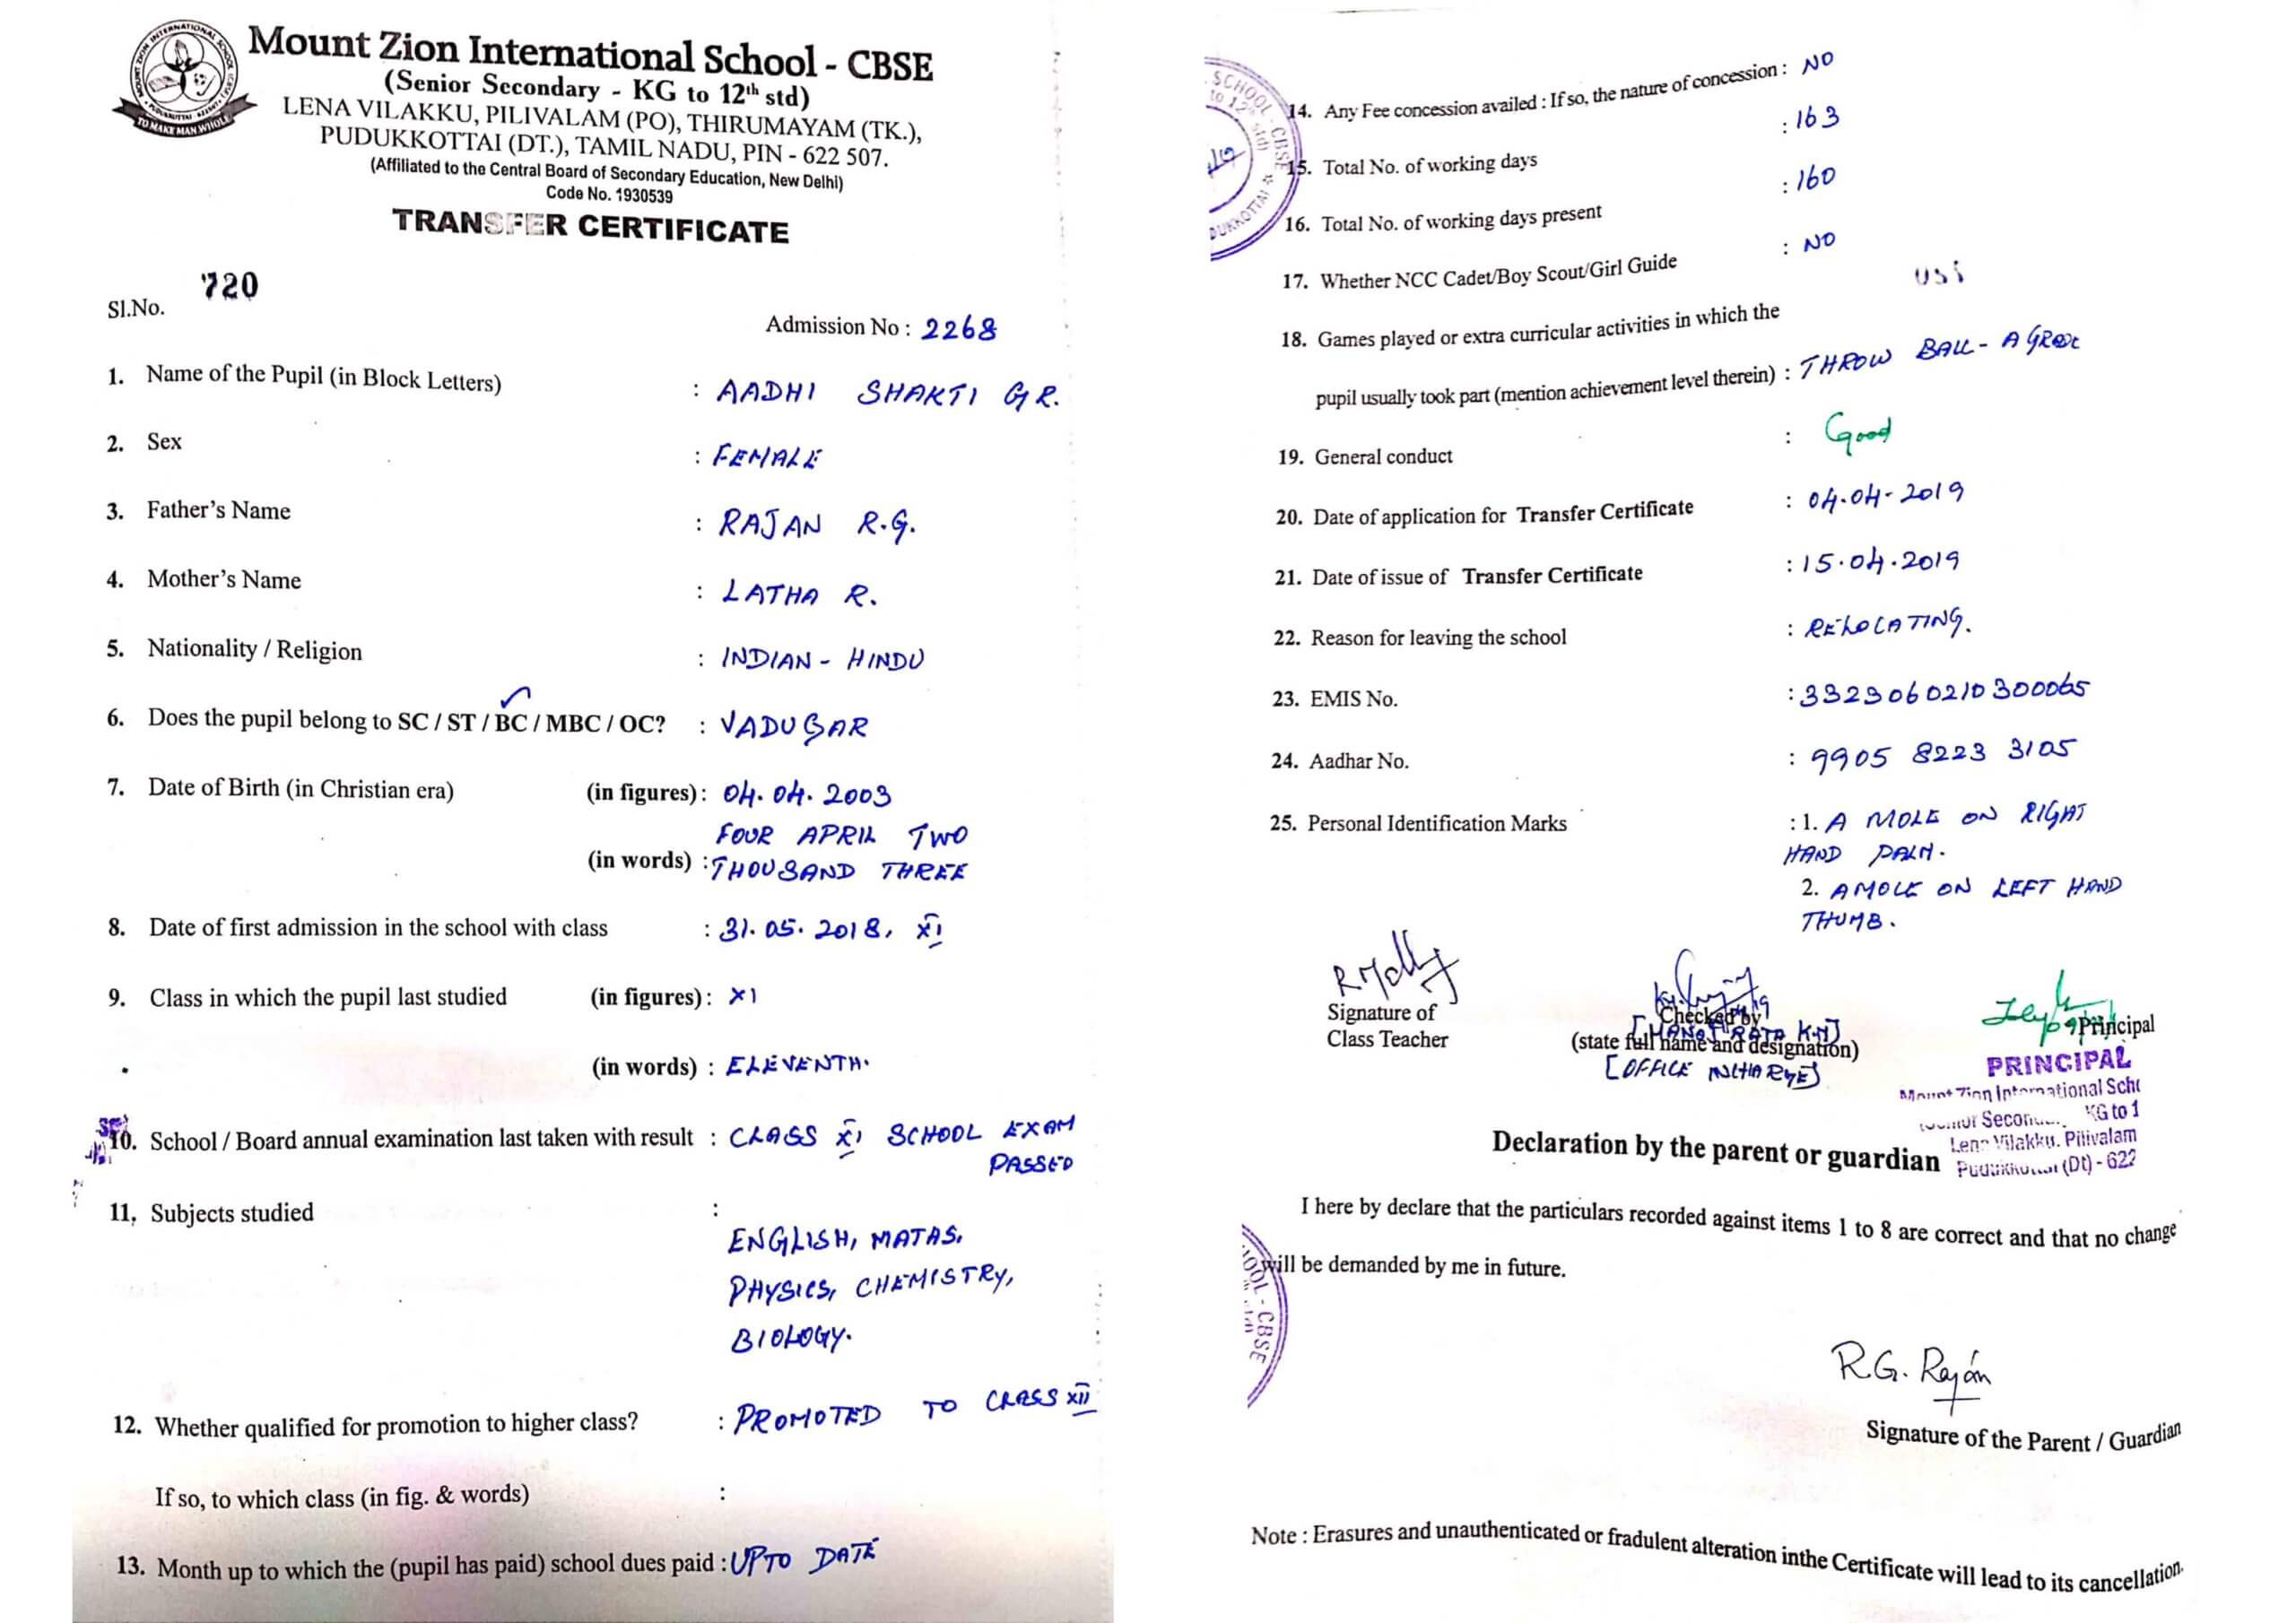 Mount Zion International School - CBSE
(Senior Secondary - KG to 12th std)
LENA VILAKKU, PILIVALAM (PO), THIRUMAYAM (TK.),
PUDUKKOTTAI (DT.), TAMIL NADU, PIN - 622 507.
(Affiliated to the Central Board of Secondary Education, New Delhi)
Code No. 1930539
TO MAKE MAN WHOLE
TRANSFER CERTIFICATE
Sl.No. 720
Admission No : 2268
1. Name of the Pupil (in Block Letters) : AADHI SHAKTI G R.
2. Sex : FEMALE
3. Father's Name : RAJAN R.G.
4. Mother's Name : LATHA R.
5. Nationality / Religion : INDIAN - HINDU
6. Does the pupil belong to SC / ST / BC / MBC / OC? : VADUGAR
7. Date of Birth (in Christian era) (in figures) : 04.04.2003
(in words) : FOUR APRIL TWO
THOUSAND THREE
8. Date of first admission in the school with class : 31.05.2018, XI
9. Class in which the pupil last studied (in figures) : XI
(in words) : ELEVENTH.
10. School / Board annual examination last taken with result : CLASS XI SCHOOL EXAM
PASSED
11. Subjects studied :
ENGLISH, MATAS,
PHYSICS, CHEMISTRY,
BIOLOGY.
12. Whether qualified for promotion to higher class? : PROMOTED TO CLASS XII
If so, to which class (in fig. & words) :
13. Month up to which the (pupil has paid) school dues paid : UPTO DATE
SCHOOL - CBSE
14. Any Fee concession availed : If so, the nature of concession : NO
15. Total No. of working days : 163
16. Total No. of working days present : 160
17. Whether NCC Cadet/Boy Scout/Girl Guide : NO
18. Games played or extra curricular activities in which the
pupil usually took part (mention achievement level therein) : THROW BALL - A GRADE
19. General conduct : Good
20. Date of application for Transfer Certificate : 04.04-2019
21. Date of issue of Transfer Certificate : 15.04.2019
22. Reason for leaving the school : RELOCATING.
23. EMIS No. : 3323060210300065
24. Aadhar No. : 9905 8223 3105
25. Personal Identification Marks : 1. A MOLE ON RIGHT
HAND PALM.
2. A MOLE ON LEFT HAND
THUMB.
Signature of
Class Teacher
Checked by
(state full name and designation)
[OFFICE INCHARGE]
Principal
PRINCIPAL
Mount Zion International Sch
KG to 1
Lena Vilakku, Pilivalam
Pudukkottai (Dt) - 622
Declaration by the parent or guardian
I here by declare that the particulars recorded against items 1 to 8 are correct and that no change
will be demanded by me in future.
OOL - CBSE
R.G. Rajan
Signature of the Parent / Guardian
Note : Erasures and unauthenticated or fradulent alteration inthe Certificate will lead to its cancellation.